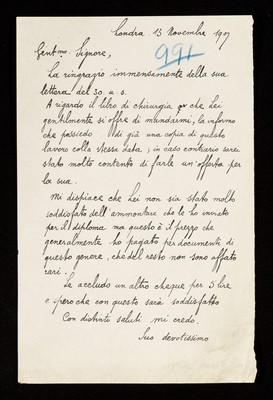 Londra 13 Novembre 1907
991
Gentmo. Signore,
La ringrazio immensamente della sua
lettera del 30. u. s.
A rigardo il libro di chirurgia che Lei
gentilmente si offre di mandarmi, la informo
che possiedo di già una copia di questo
lavoro colla stessa data, in caso contrario sarei
stato molto contento di farle un'offerta per
la sua.
Mi dispiace che Lei non sia stato molto
soddisfatto dell'ammontare che le ho inviato
per il diploma ma questo è il prezzo che
generalmente ho pagato per documenti di
questo genere, che del resto non sono affatto
rari.
Le accludo un altro cheque per 5 lire
e spero che con questo sarà soddisfatto
Con distinti saluti mi credo.
Suo devotissimo